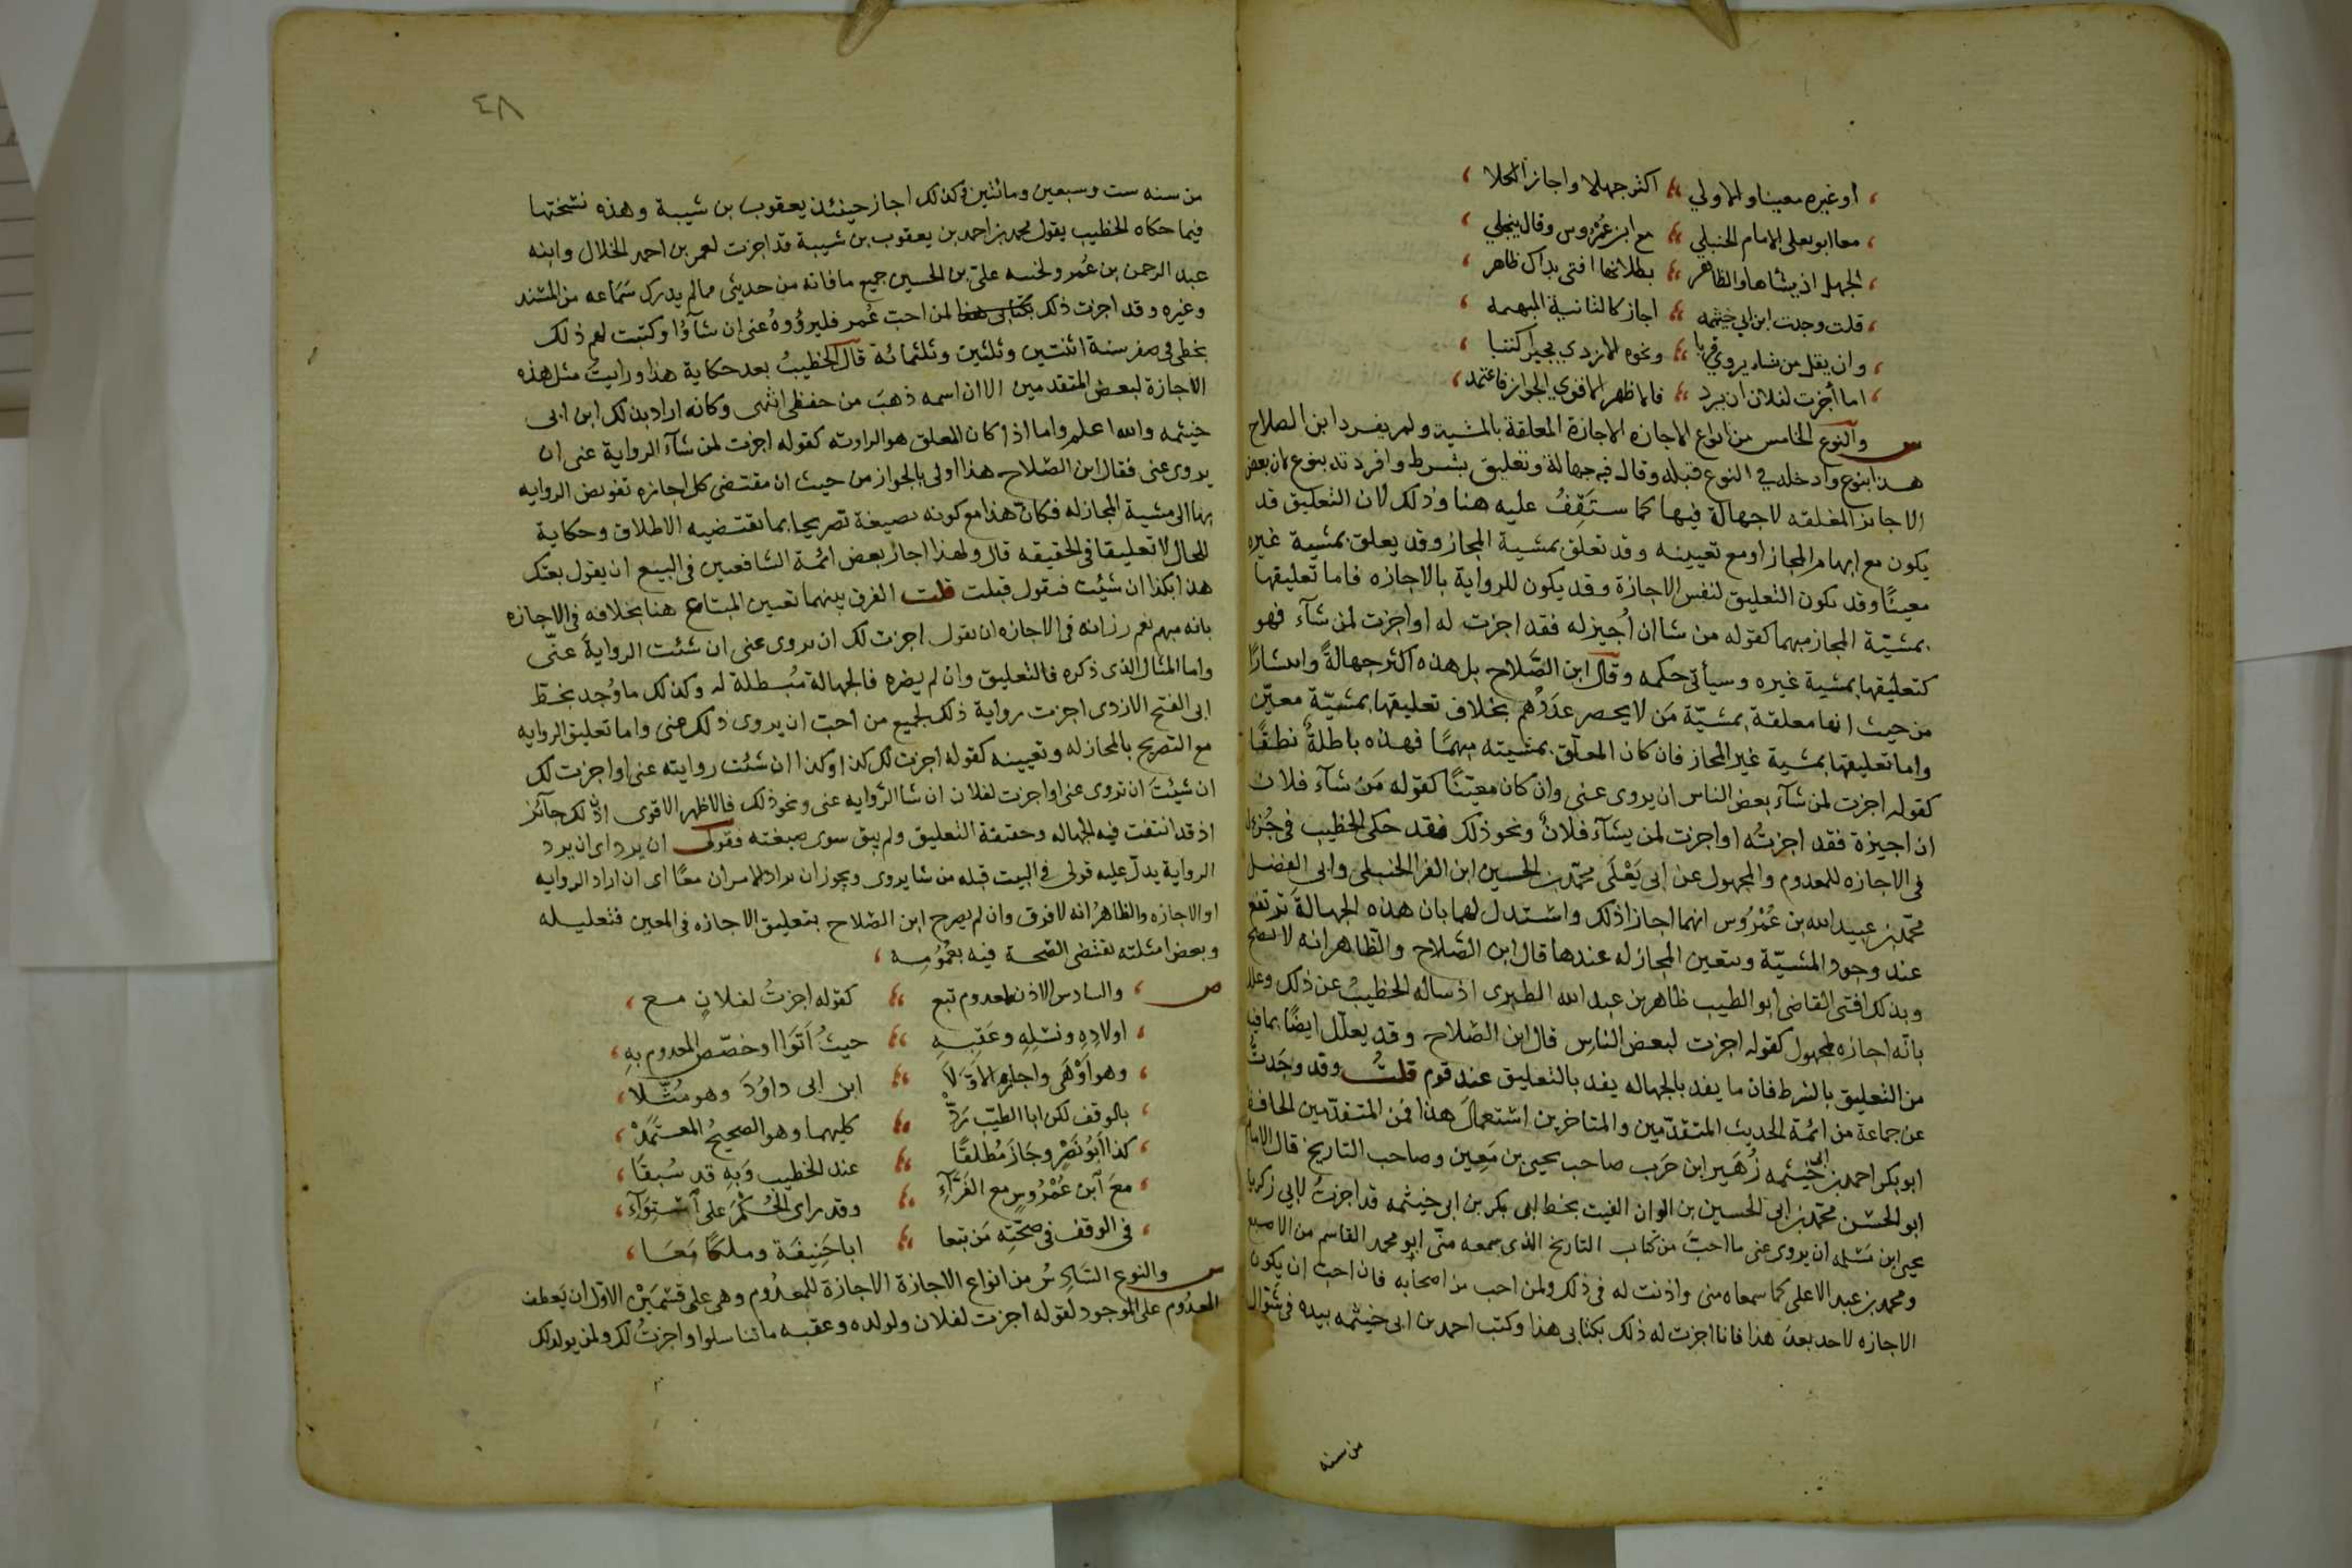 ، أو غيره معينا والاولي ؛ اكثر جهلا واجاز الكلا ،
، معا ابو يعلى الامام الحنبلي ؛ مع ابن عمروس وقال ينجلي ،
، الجهل اذ يشاها والظاهر ؛ بطلانها افتى بذاك طاهر ،
، قلت وجدت ابن ابي خيثمه ؛ اجاز كالثانية المبهمه ،
، وان يقل من شاء يروي قربا ؛ ونحوه الازدي مجيزا كتبا ،
، اما أجزت لفلان ان يرد ؛ فالاظهر الاقوى الجواز فاعتمد ،
س والنوع الخامس من انواع الاجازه الاجازة المعلقة بالمشية ولم يفرد ابن الصلاح
هذا بنوع وادخله في النوع قبله وقال فيه جهالة وتعليق بشرط وافردته بنوع لان بعض
الاجايز المعلقه لا جهالة فيها كما ستقِفُ عليه هنا وذلك لان التعليق قد
يكون مع ابهام المجاز او مع تعيينه وقد تعلق بمشية المجاز وقد يعلق بمشية غيره
معينًا وقد يكون التعليق لنفس الاجازة وقد يكون للرواية بالاجازه فاما تعليقها
بمشيّة المجاز مبهما كقوله من شا ان اُجيز له فقد اجزت له او اجزت لمن شآء فهو
كتعليقها بمشية غيره وسيأتي حكمه وقال ابن الصَّلاح بل هذه اكثر جهالةً وانتشارًا
من حيث انها معلقة بمشيّة مَن لا يحصر عَدَدُهُم بخلاف تعليقها بمشيّة معيّن
واما تعليقها بمشية غير المجاز فان كان المعلّق بمشيته مبهمًا فهذه باطلةٌ قطعًا
كقوله اجزت لمن شآء بعض الناس ان يروى عنى وان كان معيّنًا كقوله مَن شآء فلان
ان اجيزه فقد اجزتُه او اجزت لمن يشآء فلانٌ ونحو ذلك فقد حكى الخطيب فى جُزءٍ له
فى الاجازه للمعدوم والمجهول عن ابى يَعْلَى محمّد بن الحسين ابن الفرا الحنبلى وابى الفضل
محمّد بن عبيد الله بن عُمْرُوس انهما اجازا ذلك واستدل لهما بان هذه الجهالةَ ترتفع
عند وجود المشيّة ويتعين المجاز له عندها قال ابن الصّلاح والظاهر انه لا يصح
وبذلك افتى القاضى ابو الطيب طاهر بن عبد الله الطبرى اذ ساله الخطيبُ عن ذلك وعلل
بانّه اجازه لمجهول كقوله اجزت لبعض الناس قال ابن الصّلاح وقد يعلّل ايضًا بما فيه
من التعليق بالشرط فان ما يفسد بالجهاله يفسد بالتعليق عند قوم قلتُ وقد وجَدتُ
عن جماعة من ائمة الحديث المتقدّمين والمتاخرين استعمالَ هذا فمن المتقدّمين الحافظ
ابو بكر احمد بن ابى خيثمه زُهَير ابن حَرَب صاحب يحيى بن مَعِين وصاحب التاريخ قال الامام
ابو الحسَن محمّد بن ابى الحسين بن الوزان الفيت بخط ابى بكر بن ابى خيثمه قد اجزتُ لابى زكريا
يحيى ابن مَسْلمه ان يروى عنى ما احبّ من كتاب التاريخ الذى سمعه منّى ابو محمد القاسم من الاصبع
ومحمد بن عبد الاعلى كما سمعاه منى واذنت له فى ذلك ولمن احب من اصحابه فان احب ان يكون
الاجازه لاحد بعدَ هذا فانا اجزت له ذلك بكتابى هذا وكتب احمد بن ابى خيثمه بيده فى شوّال
من سنه
٤٨
من سنه ست وسبعين ومائتين وكذلك اجاز حفيد يعقوب بن شيبة وهذه نسختها
فيما حكاه الخطيب يقول محمد بن احمد بن يعقوب بن شيبة قد اجزت لعمر بن احمد الخلال وابنه
عبد الرحمن بن عُمر ولختنه علىّ بن الحسين جميع ما فاته من حديثى مما لم يدرك سَمَاعه من المسند
وغيره وقد اجزت ذلك بكتابى هذا لمن احبّ عُمر فليروُوهُ عنى ان شآؤُا وكتبت لهم ذلك
بخطى فى صفر سنة اثنتين وثلثين وثلثمائة قال الخطيبُ بعد حكاية هذا ورايت مثل هذه
الاجازة لبعض المتقدمين الا ان اسمه ذهبَ من حفظى انتهى وكانه اراد بذلك ابن ابى
خيثمه والله اعلم واما اذا كان المعلق هو الروايه كقوله اجزت لمن شآء الرواية عنى ان
يروى عنى فقال ابن الصّلاح هذا اولى بالجواز من حيث ان مقتضى كل اجازه تفويض الروايه
بها الى مشية المجاز له فكان هذا مع كونه بصيغة تصريحا بما يقتضيه الاطلاق وحكاية
للحال لا تعليقا فى الحقيقه قال ولهذا اجاز بعض ائمة الشافعيين فى البيع ان يقول بعتك
هذا بكذا ان شئت فيقول قبلت قلت الفرق بينهما تعيين المبتاع هنا بخلافه فى الاجازه
بانه مبهم نعم رزانه فى الاجازه ان يقول اجزت لك ان يروى عنى ان شئت الروايةَ عنّى
واما المثال الذى ذكره فالتعليق وان لم يضره فالجهالة مُبطلة له وكذلك ما وُجد بخطّ
ابى الفتح الازدى اجزت رواية ذلك لجميع من احب ان يروى ذلك عنى واما تعليق الروايه
مع التصريح بالمجاز له وتعيينه كقوله اجزت لك كذا وكذا ان شئت روايته عنى او اجزت لك
ان شيئتَ ان تروى عنى او اجزت لفلان ان شا الرّوايه عنى ونحو ذلك فالاظهر الاقوى ان ذلك جآئز
اذ قد انتفت فيه الجهاله وحقيقة التعليق ولم يبق سوى صيغته فقولى ان يرد اى ان يرد
الرواية يدلّ عليه قولى فى البيت قبله من شا يروى ويجوز ان يراد الامران معًا اى ان اراد الروايه
او الاجازه والظاهرُ انه لا فرق وان لم يصرح ابن الصّلاح بتعليق الاجازه فى المعين فتعليله
وبعض امثلته تقتضى الصّحة فيه بعمُومِه ،
ص ، والسادس الاذن لمعدوم تبع ؛ كقوله اجزتُ لفلانٍ مع ،
، اولادِهِ ونسْلِهِ وعَقِبِهِ ؛ حيثُ اَتَوَا او خصّص المعدوم بهِ ،
، وهو اَوْهَى واجاز الاوّلاَ ؛ ابن ابى داوُدَ وهو مُثّلا ،
، بالوقف لكن ابا الطيّب رَدّْ ؛ كليهما وهو الصحيحُ المعتمَدْ ،
، كذا اَبُو نَصْرٍ وجَازَ مُطلقًا ؛ عند الخطيب وَبِهِ قد سُبقًا ،
، معَ ابن عُمْرُوسٍ مع الفَرَّآءِ ؛ وقد راى الحُكْمَ على اسْتِوَآءِ ،
، فى الوقف فى صحّتِه مَن تبعا ؛ ابا حَنِيفَة وملكًا مَعَا ،
س والنوع السَّادِسُ من انواع الاجازة الاجازة للمعدُوم وهى على قسْمَيْن الاوّل ان يَعطف
المعدُوم على الموجود لقوله اجزت لفلان ولولده وعقبه ما تناسلوا او اجزتُ لك ولمن يولد لك